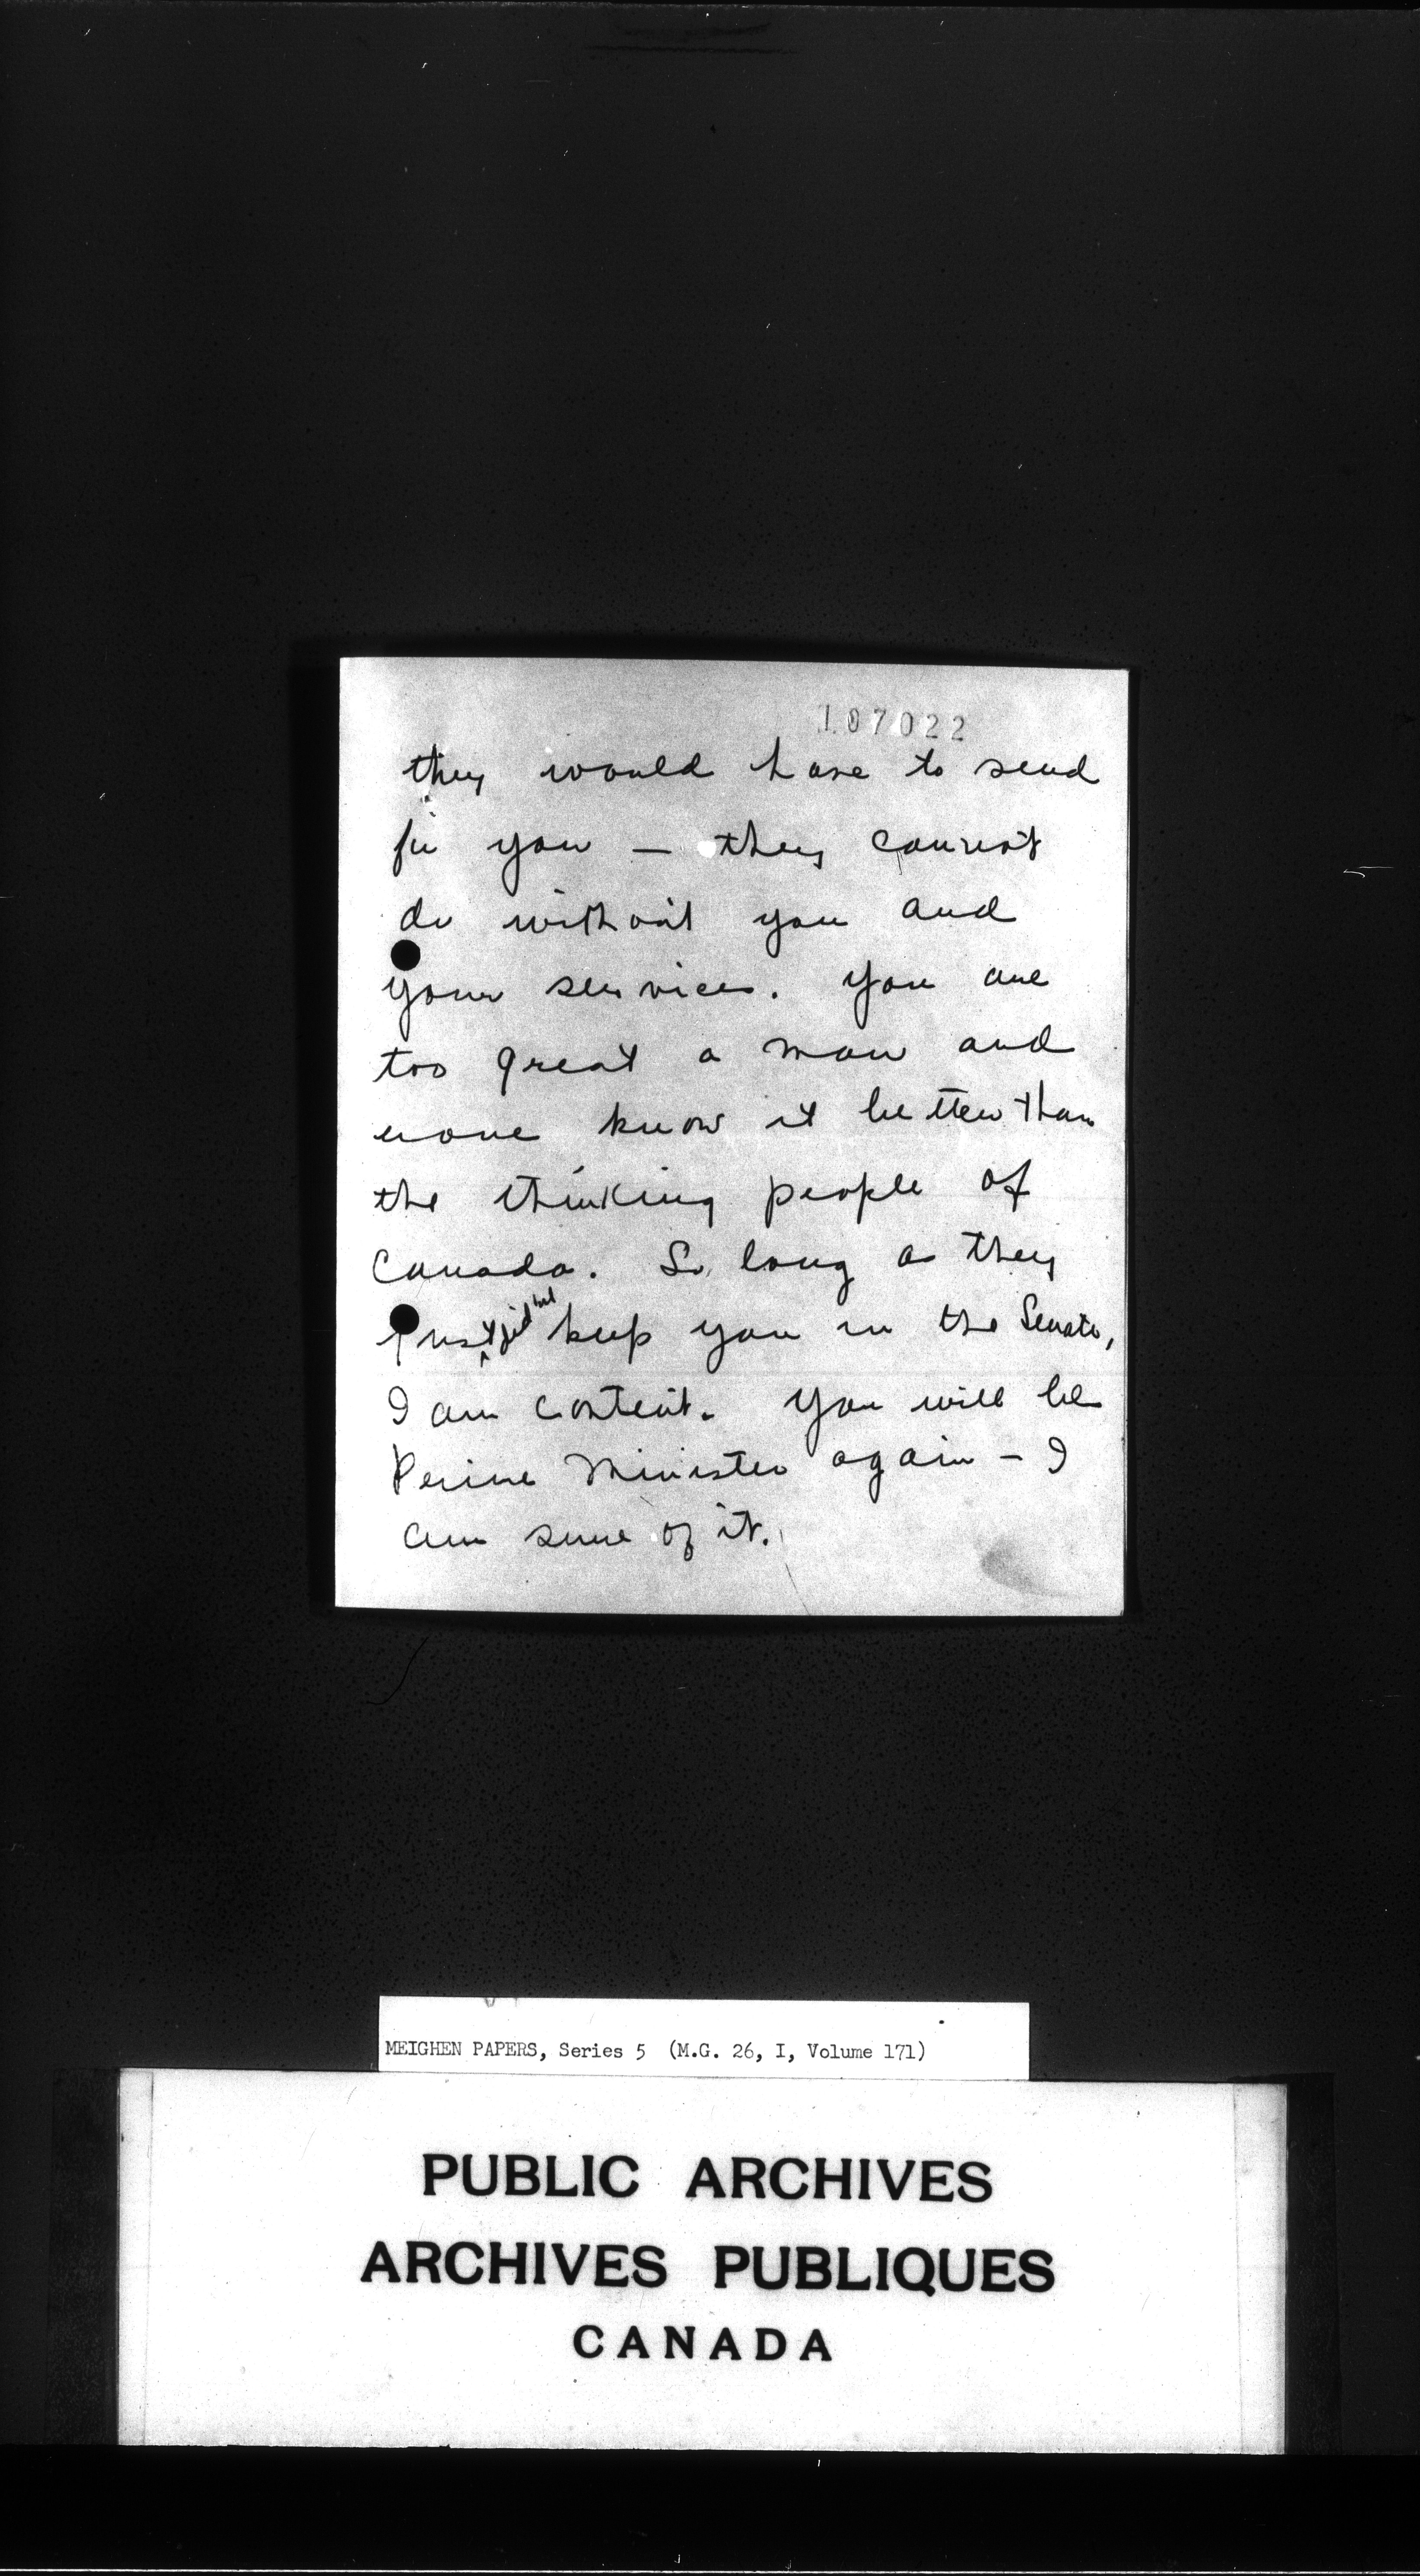 107022
they would have to send
for you — they cannot
do without you and
your services. You are
too great a man and
none know it better than
the thinking people of
Canada. So long as they
just keep you in the Senate,
I am content. You will be
Prime Minister again - I
am sure of it.
MEIGHEN PAPERS, Series 5 (M.G. 26, I, Volume 171)
PUBLIC ARCHIVES
ARCHIVES PUBLIQUES
CANADA